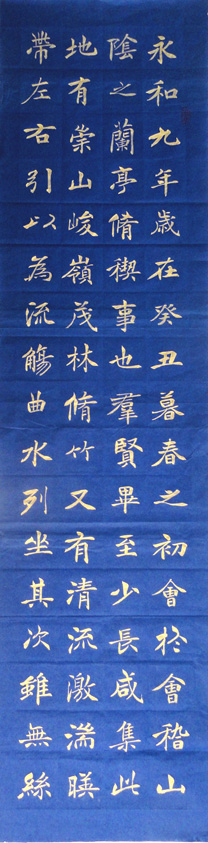 永和九年歲在癸丑暮春之初會於會稽山
陰之蘭亭脩禊事也羣賢畢至少長咸集此
地有崇山峻嶺茂林脩竹又有清流激湍暎
帶左右引以為流觴曲水列坐其次雖無絲